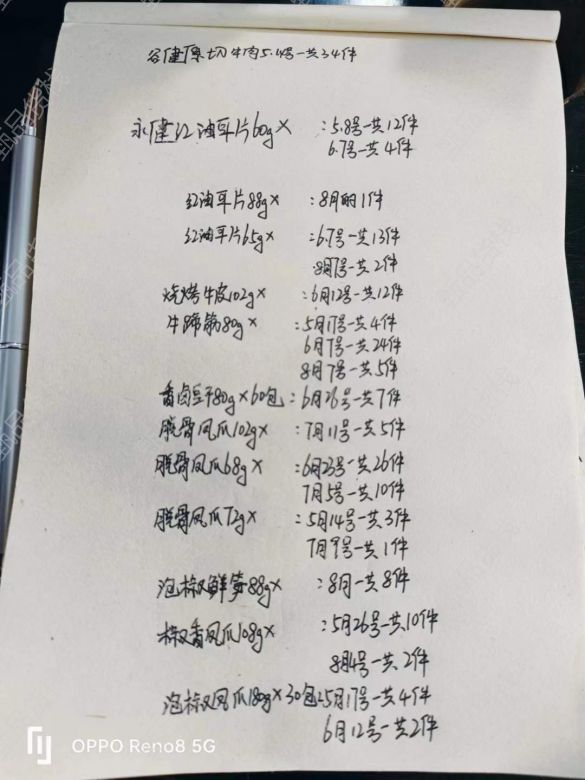 谷健原切牛肉5.4号一共34件
永健红油耳片60g× :5.8号一共12件
6.7号一共4件
红油耳片88g× :8月的1件
红油耳片65g× :6.7号一共13件
8月7号一共2件
烧烤牛皮102g× :6月12号一共12件
牛蹄筋80g× :5月17号一共4件
6月7号一共24件
8月7号一共5件
香卤豆干80g×60包:6月26号一共7件
脱骨凤爪102g× :7月11号一共5件
脱骨凤爪68g× :6月23号一共26件
7月5号一共10件
脱骨凤爪72g× :5月14号一共3件
7月9号一共1件
泡椒鲜笋88g× :8月一共8件
椒香凤爪108g× :5月26号一共10件
8月4号一共2件
泡椒凤爪180g×30包:5月17号一共4件
6月12号一共2件
OPPO Reno8 5G